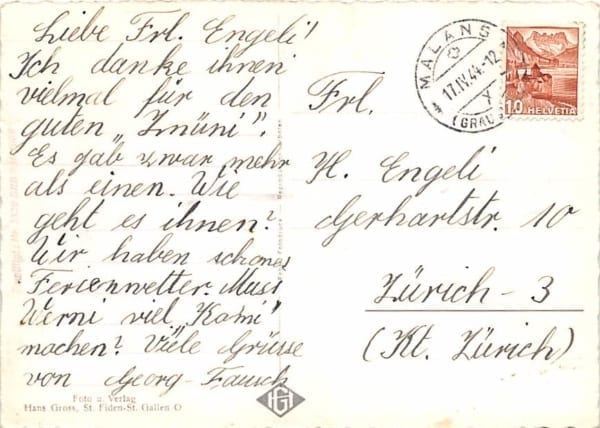 Liebe Frl. Engeli!
Ich danke ihnen
vielmal für den
guten „Zmüni".
Es gab zwar mehr
als einen. Wie
geht es ihnen?
Wir haben schönes
Ferienwetter. Muss
Werni viel „Kami"
machen? Viele Grüsse
von Georg Fausch
Foto u. Verlag
Hans Gross, St. Fiden-St. Gallen O
HG
MALANS
17.IV.44.-12
(GRAUB
10 HELVETIA
Frl.
H. Engeli
Gerhartstr. 10
Zürich-3
(Kt. Zürich)